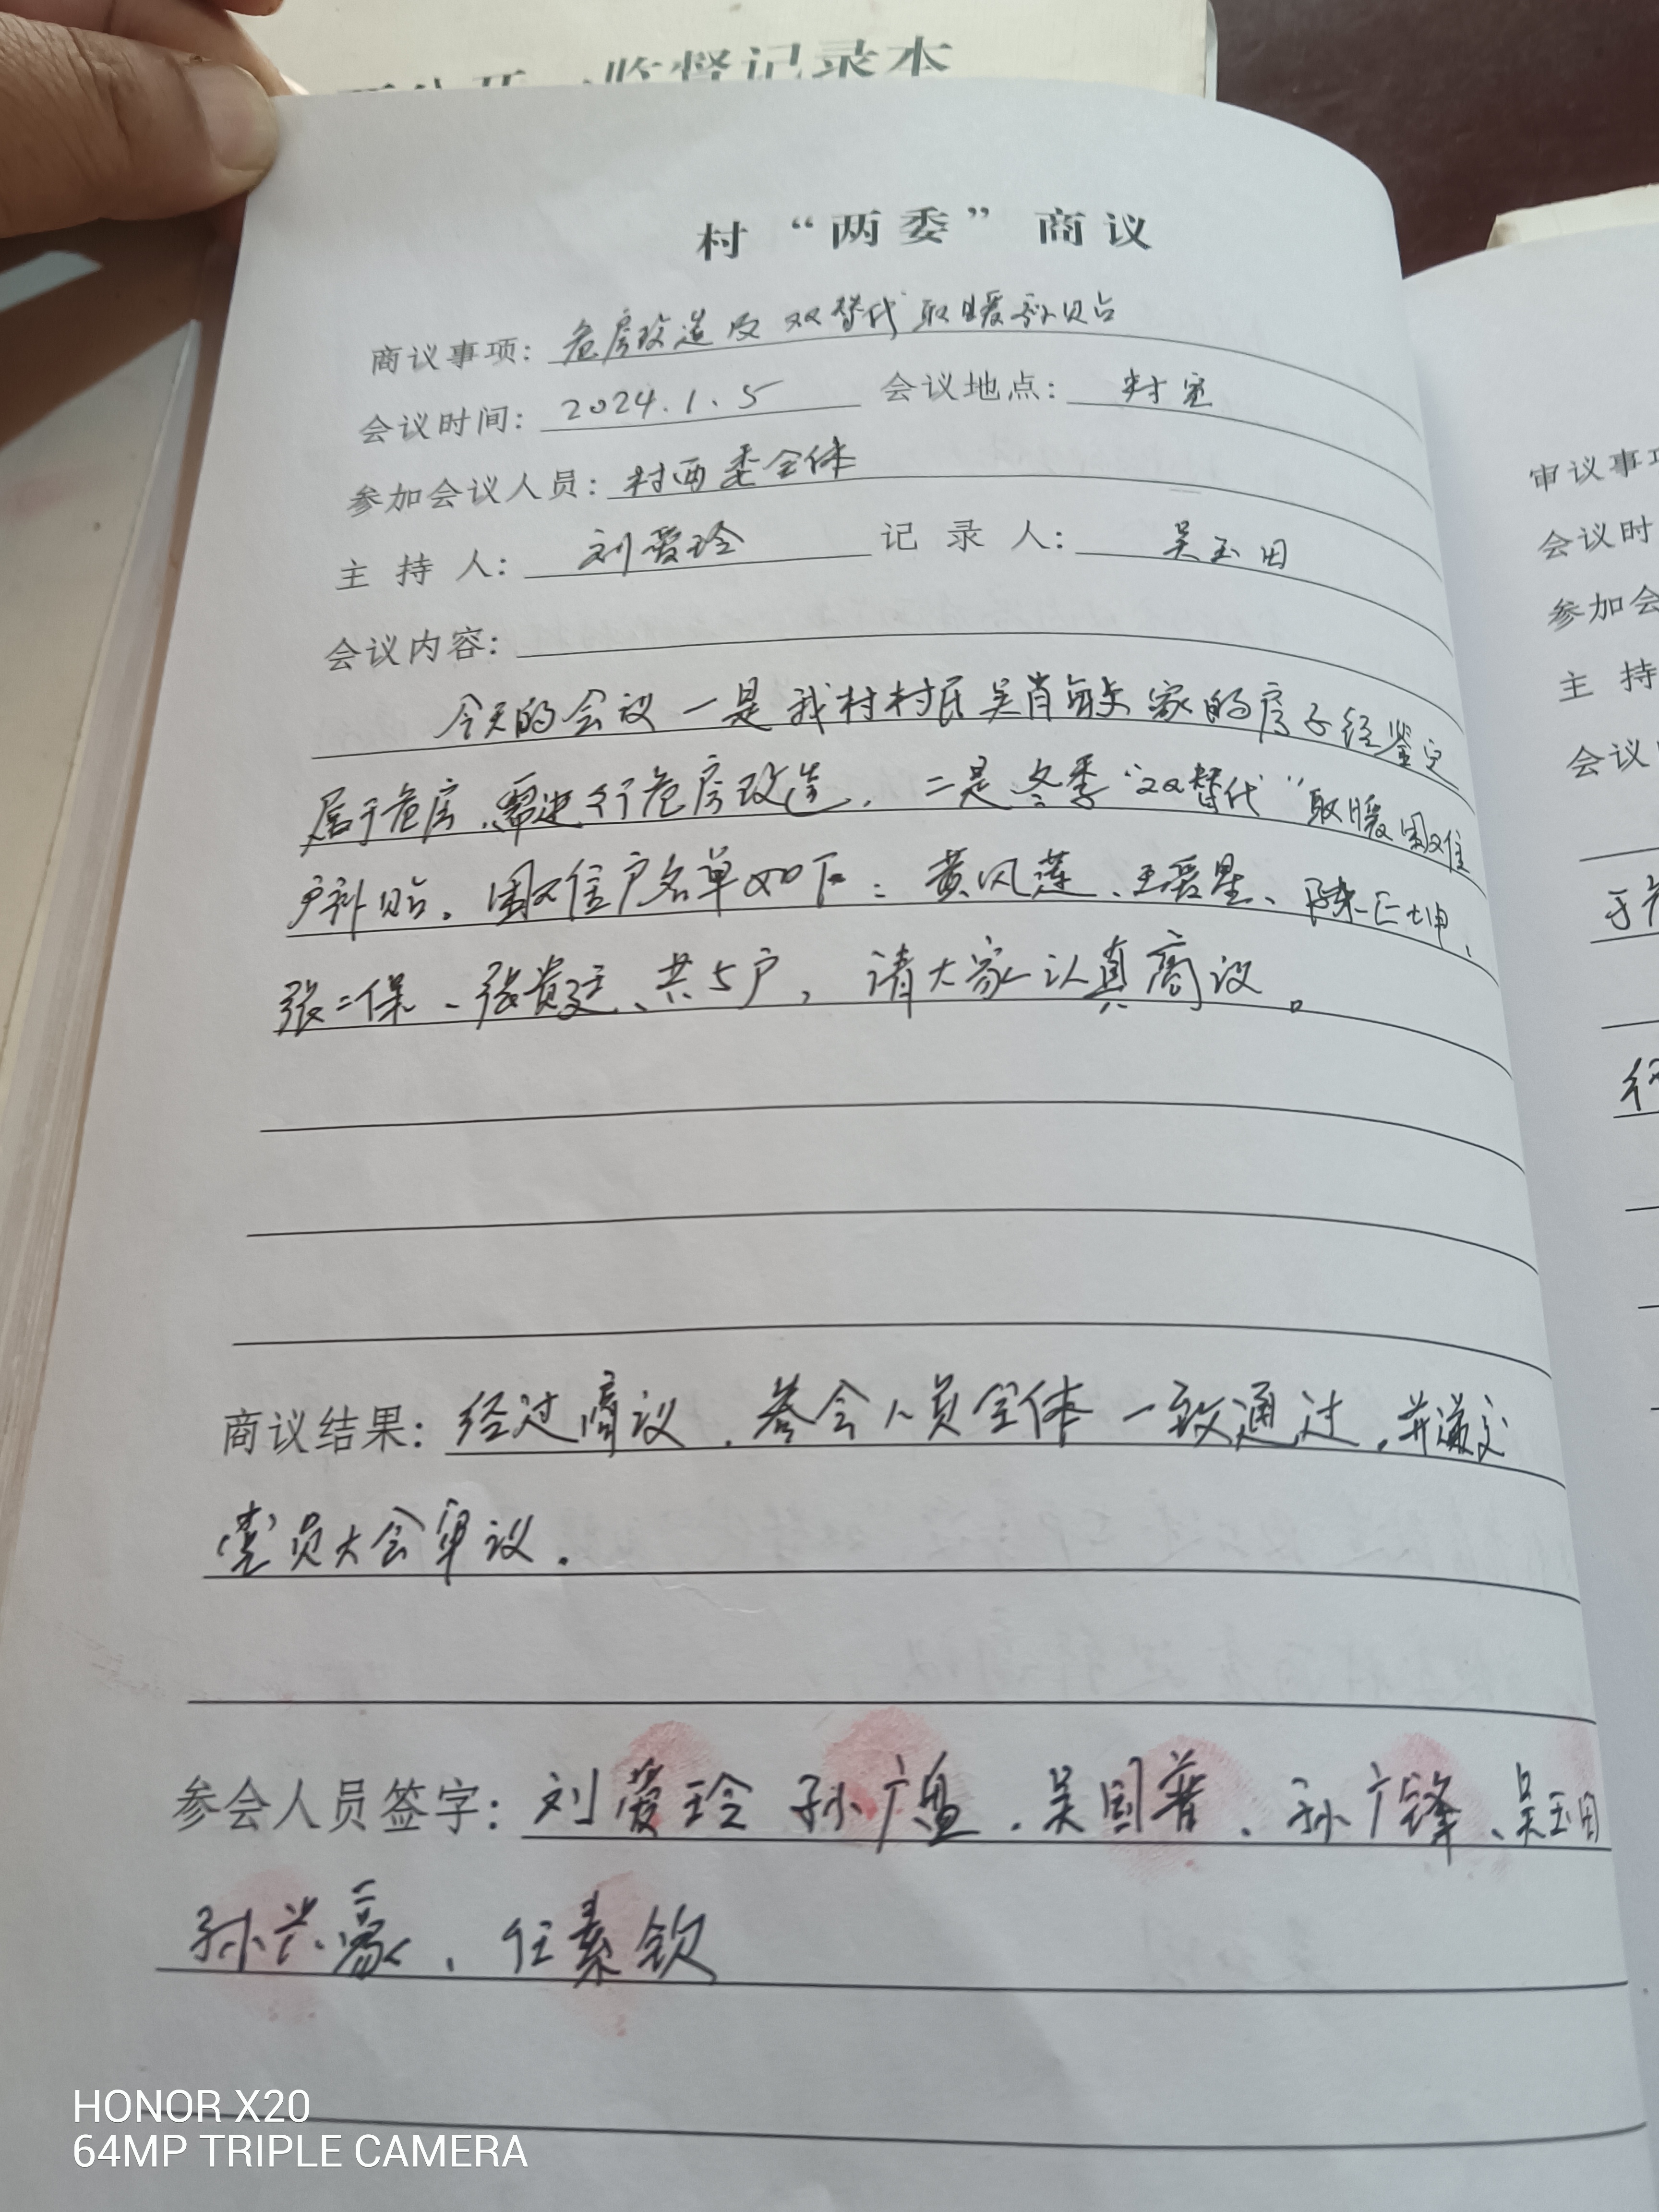 监督记录本
村“两委”商议
商议事项：危房改造及双替代取暖补贴
会议时间：2024.1.5 会议地点：村室
参加会议人员：村两委全体
主持人：刘爱玲 记录人：吴玉田
会议内容：
今天的会议一是我村村民吴肖家的房子经鉴定
属于危房，需进行危房改造，二是冬季“双替代”取暖困难住
户补贴。困难住户名单如下：黄风莲、王爱星、陈仁坤、
张二保、张贵廷、共5户，请大家认真商议。
商议结果：经过商议，参会人员全体一致通过，并递交
党员大会审议。
参会人员签字：刘爱玲 孙广盈、吴国普、孙广锋、吴玉田
孙兴豪、任素钦
审议事项
会议时
参加会
主持
会议
HONOR X20
64MP TRIPLE CAMERA